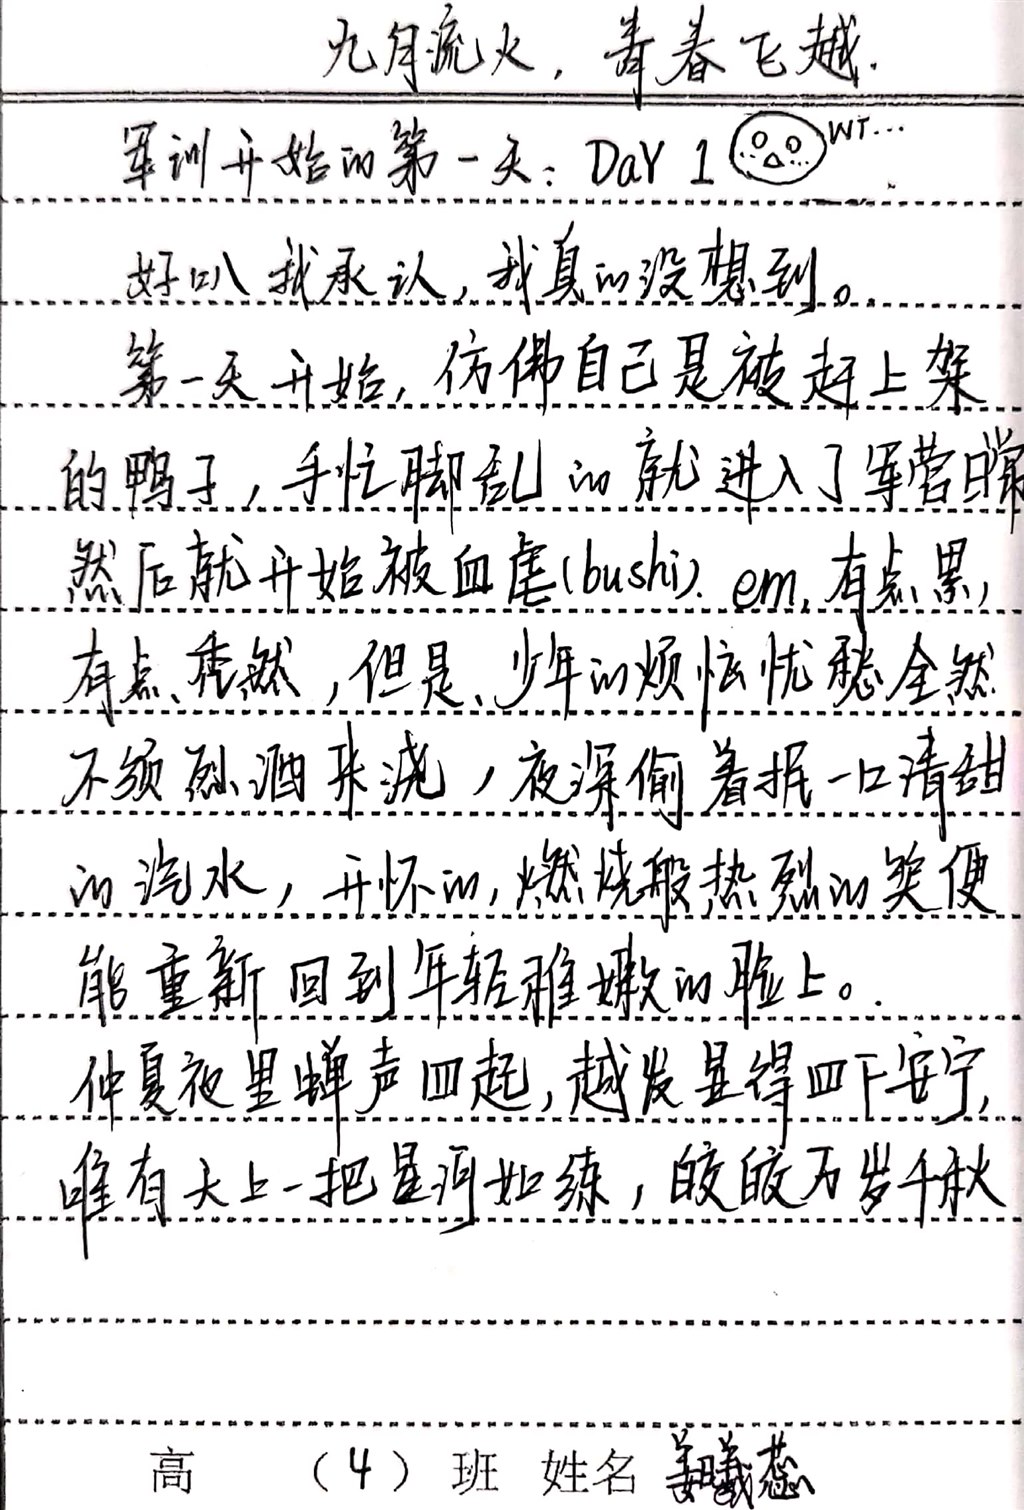 九月流火，青春飞越.
军训开始的第一天：DaY 1 WT...
好叭我承认，我真的没想到。
第一天开始，仿佛自己是被赶上架
的鸭子，手忙脚乱的就进入了军营日常
然后就开始被血虐(bushi). em,有点累，
有点秃然，但是、少年的烦恼忧愁全然
不须烈酒来浇，夜深偷着抿一口清甜
的汽水，开怀的，燃烧般热烈的笑便
能重新回到年轻稚嫩的脸上。
仲夏夜里蝉声四起，越发显得四下安宁，
唯有天上一把星河如练，皎皎万岁千秋
高 （4）班 姓名 姜曦蕊